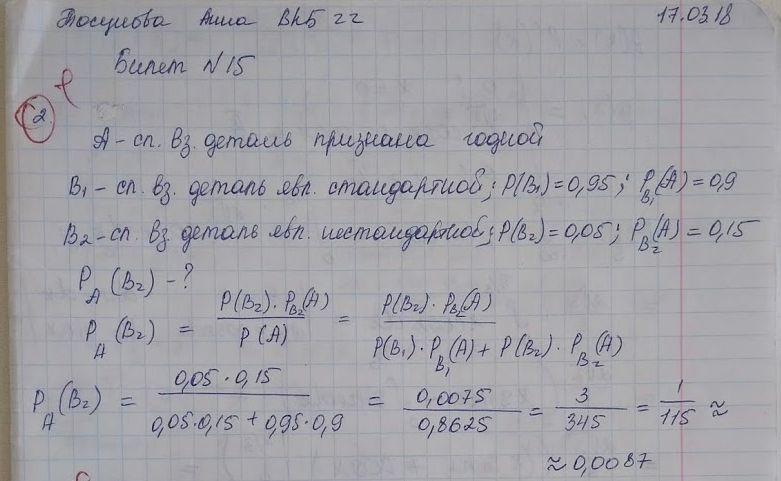 Анна ВКБ 22 17.03.18
Билет N15
2.
A - сл. вз. деталь признана годной
B₁ - сл. вз. деталь явл. стандартной; P(B₁) = 0,95; P_B₁(A) = 0,9
B₂ - сл. вз. деталь явл. нестандартной; P(B₂) = 0,05; P_B₂(A) = 0,15
P_A(B₂) - ?
P_A(B₂) = P(B₂) · P_B₂(A) / P(A) = P(B₂) · P_B₂(A) / P(B₁) · P_B₁(A) + P(B₂) · P_B₂(A)
P_A(B₂) = 0,05 · 0,15 / 0,05·0,15 + 0,95·0,9 = 0,0075 / 0,8625 = 3 / 345 = 1 / 115 ≈
≈ 0,0087